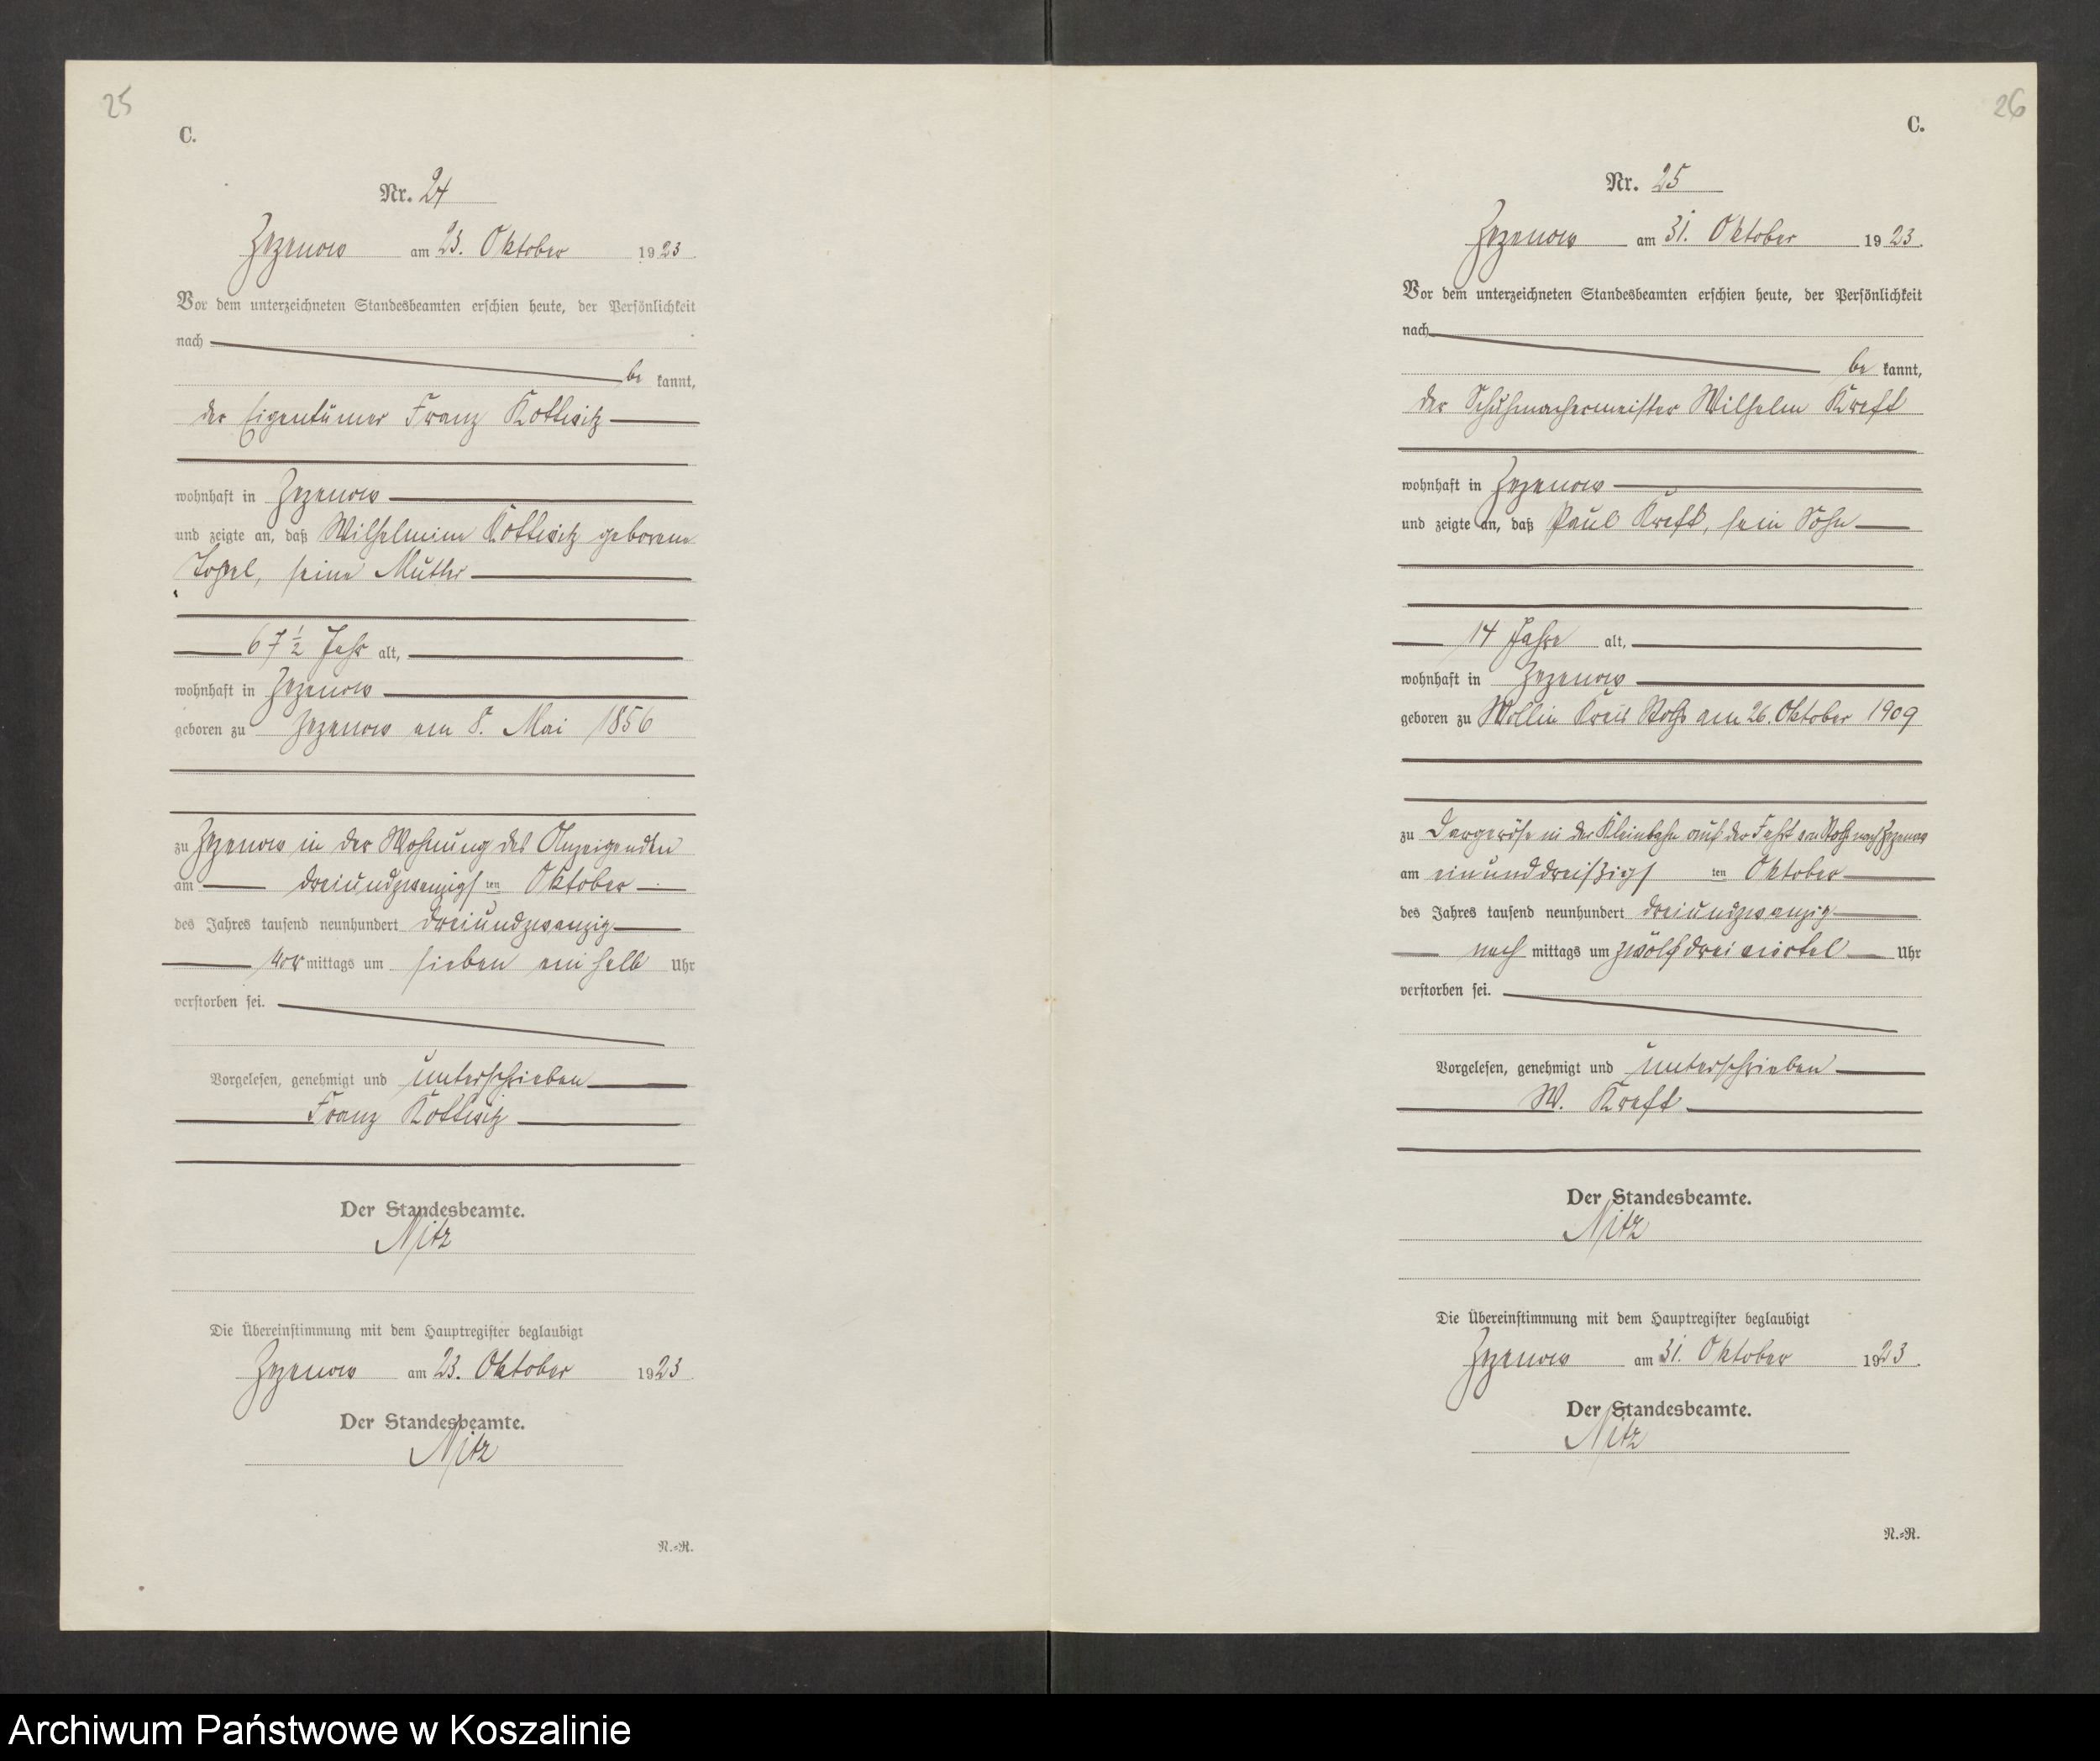 25
C.
Nr. 24
Zezenow am 23. Oktober 1923.
Vor dem unterzeichneten Standesbeamten erschien heute, der Persönlichkeit
nach
be kannt,
der Eigentümer Franz Kottwitz
wohnhaft in Zezenow
und zeigte an, daß Wilhelmine Kottwitz geborene
seine Mutter
67 1/2 Jahr alt,
wohnhaft in Zezenow
geboren zu Zezenow am 8. Mai 1856
zu Zezenow in der Wohnung des Anzeigenden
am dreiundzwanzigsten Oktober
des Jahres tausend neunhundert dreiundzwanzig
vor mittags um sieben ein halb Uhr
verstorben sei.
Vorgelesen, genehmigt und unterschrieben
Franz Kottwitz
Der Standesbeamte.
Nitz
Die Übereinstimmung mit dem Hauptregister beglaubigt
Zezenow am 23. Oktober 1923.
Der Standesbeamte.
Nitz
N.=R.
26
C.
Nr. 25
Zezenow am 31. Oktober 1923.
Vor dem unterzeichneten Standesbeamten erschien heute, der Persönlichkeit
nach
be kannt,
der Schuhmachermeister Wilhelm Kreft
wohnhaft in Zezenow
und zeigte an, daß Paul Kreft, sein Sohn
14 Jahre alt,
wohnhaft in Zezenow
geboren zu Wollin Kreis Stolp am 26. Oktober 1909
zu Dargeröse in der Kleinbahn auf der Fahrt von Stolp nach Zezenow
am einunddreißigsten Oktober
des Jahres tausend neunhundert dreiundzwanzig
nach mittags um zwölf dreiviertel Uhr
verstorben sei.
Vorgelesen, genehmigt und unterschrieben
W. Kreft
Der Standesbeamte.
Nitz
Die Übereinstimmung mit dem Hauptregister beglaubigt
Zezenow am 31. Oktober 1923.
Der Standesbeamte.
Nitz
N.=R.
Archiwum Państwowe w Koszalinie